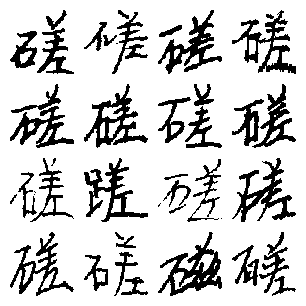 磋磋磋磋
磋磋磋磋
磋蹉磋磋
磋磋磁磋